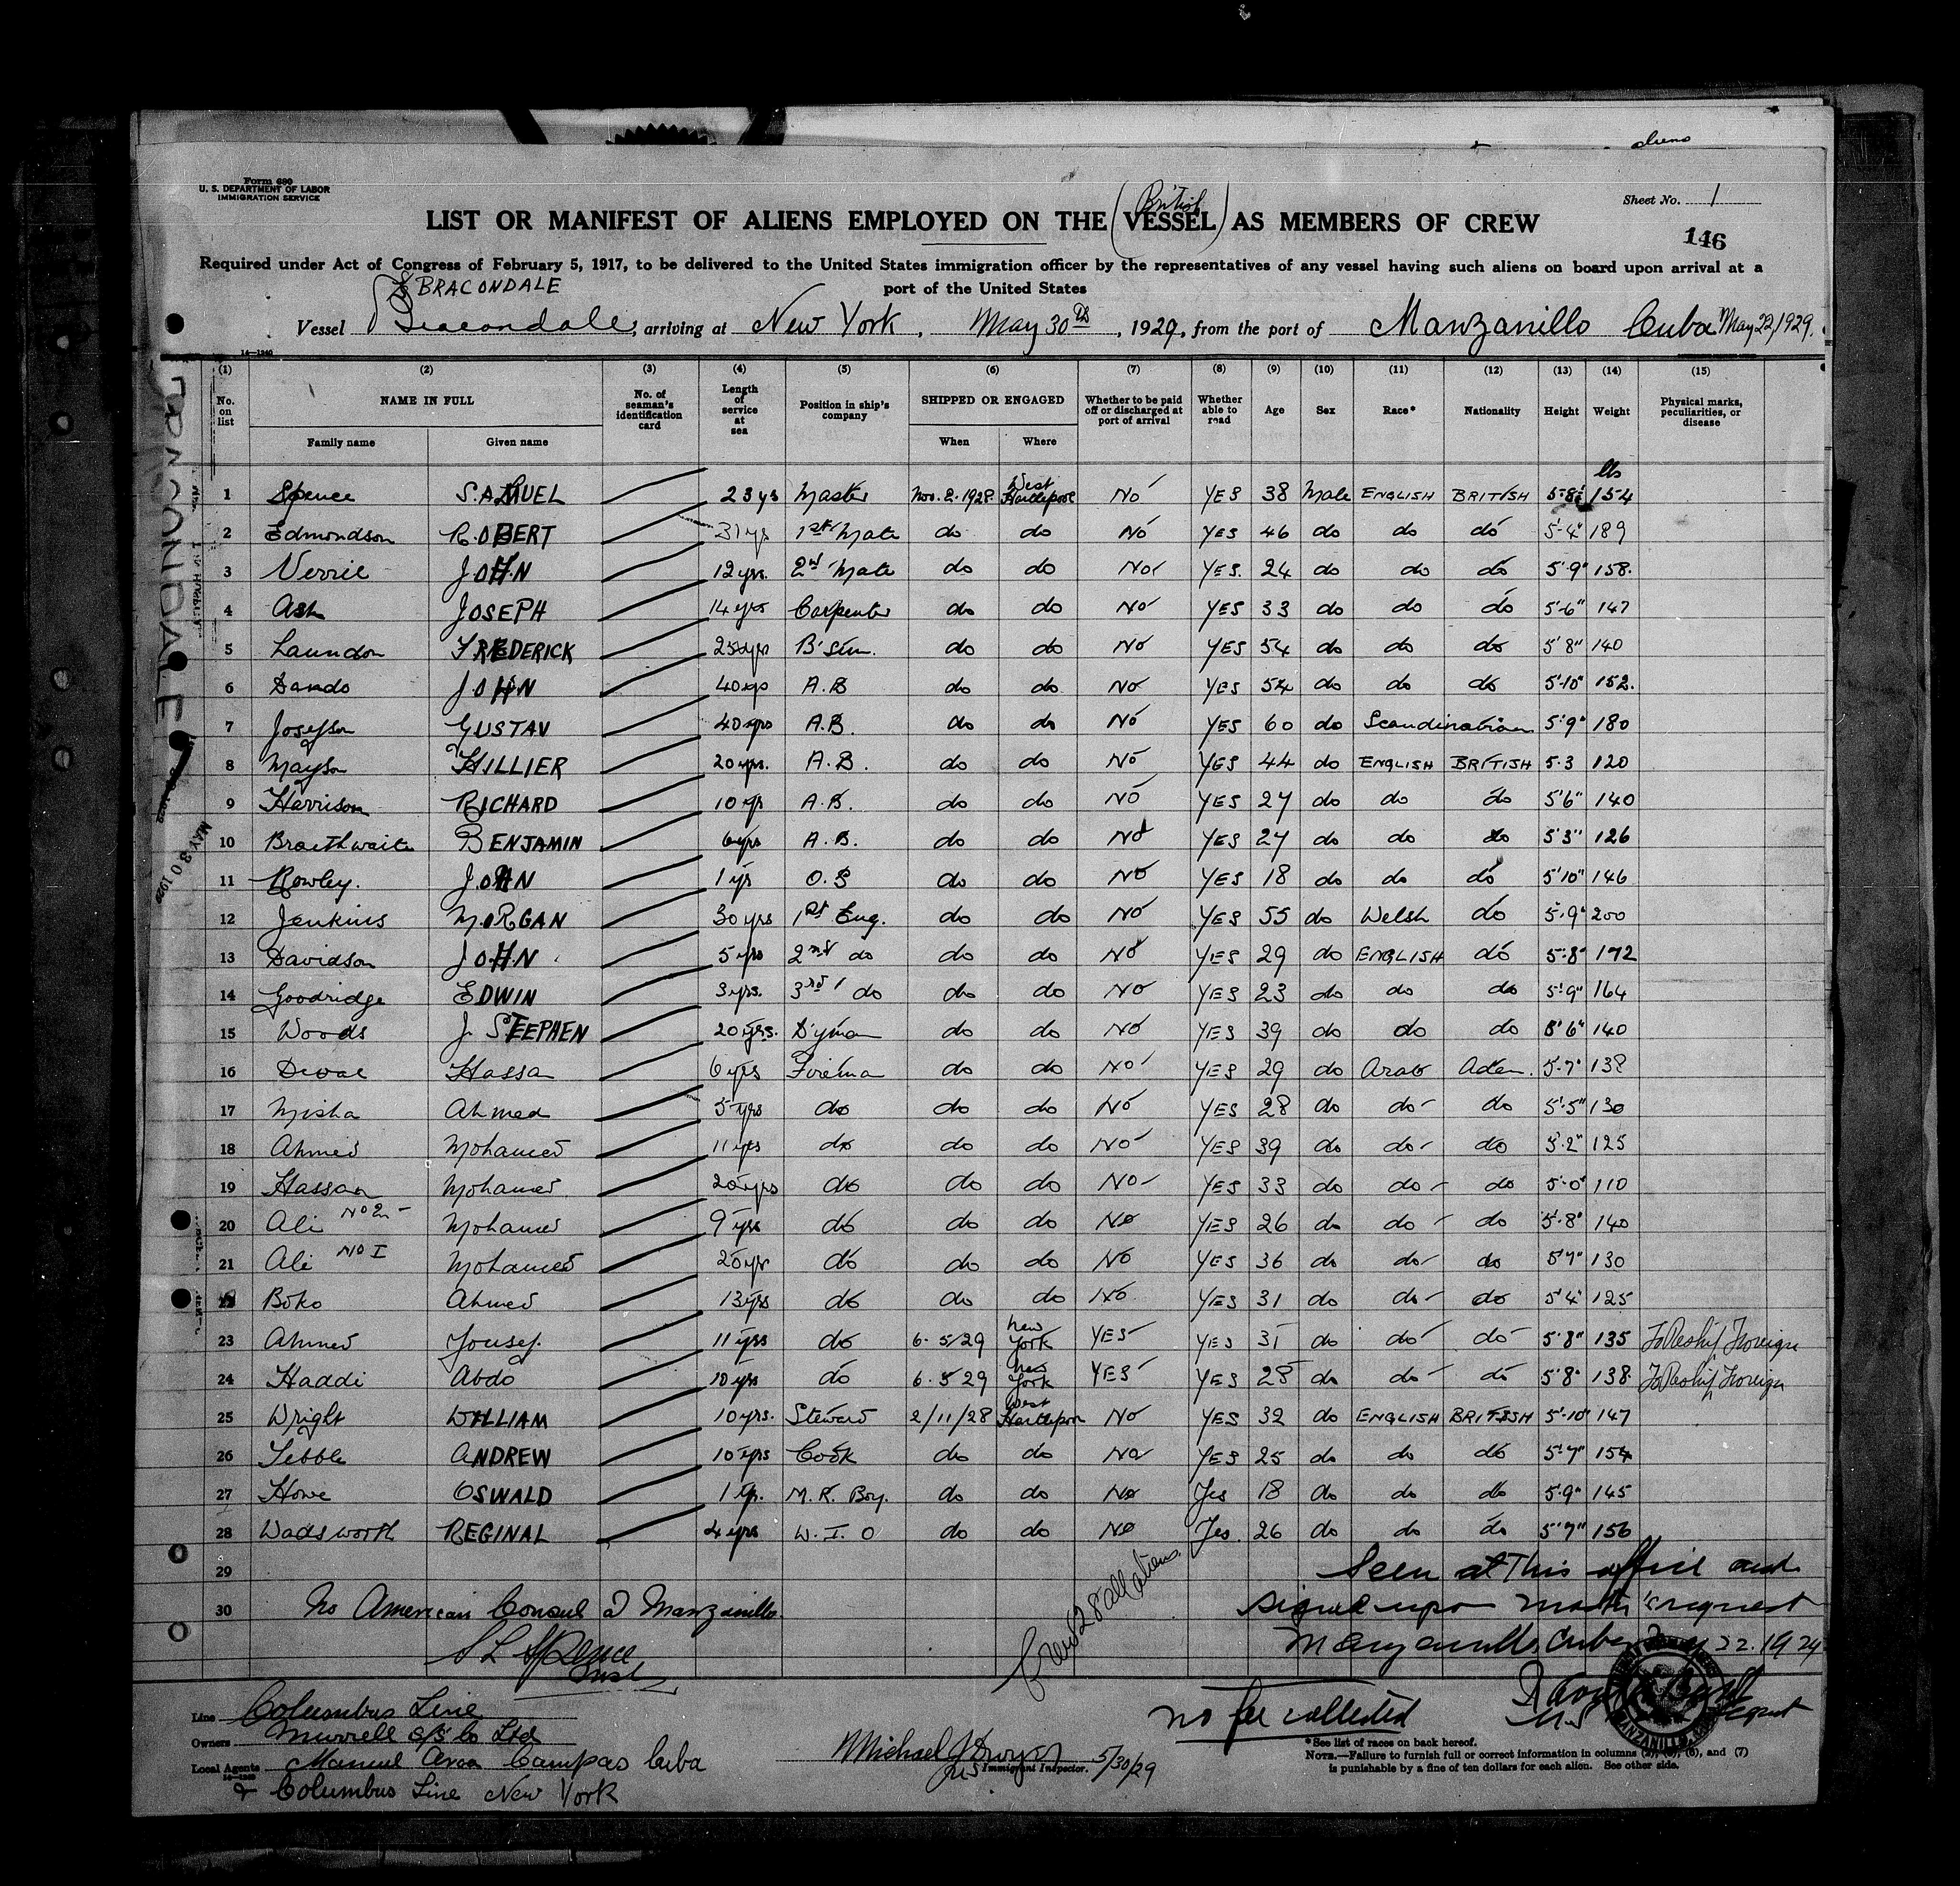 aliens
Form 680
U. S. DEPARTMENT OF LABOR
IMMIGRATION SERVICE
Sheet No. 1
British
LIST OR MANIFEST OF ALIENS EMPLOYED ON THE (VESSEL) AS MEMBERS OF CREW
146
Required under Act of Congress of February 5, 1917, to be delivered to the United States immigration officer by the representatives of any vessel having such aliens on board upon arrival at a
port of the United States
BRACONDALE
Vessel Bracondale, arriving at New York, May 30th, 1929, from the port of Manzanillo Cuba May 22/1929.
14-1240
(1) (2) (3) (4) (5) (6) (7) (8) (9) (10) (11) (12) (13) (14) (15)
No. on list NAME IN FULL No. of seaman's identification card Length of service at sea Position in ship's company SHIPPED OR ENGAGED Whether to be paid off or discharged at port of arrival Whether able to read Age Sex Race* Nationality Height Weight Physical marks, peculiarities, or disease
Family name Given name When Where
lbs
1 Spence SAMUEL 23 yrs Master Nov. 2. 1928 West Hartlepool No YES 38 Male ENGLISH BRITISH 5-8½ 154
2 Edmondson ROBERT 31 yrs 1st Mate do do No YES 46 do do do 5-4" 189
3 JOHN 12 yrs. 2nd Mate do do No YES. 24 do do do 5'9" 158.
4 Ash JOSEPH 14 yrs Carpenter do do No YES 33 do do do 5-6" 147
5 Laundon FREDERICK B'sun. do do No YES 54 do do do 5'8" 140
6 Dando JOHN 40 yrs A.B do do No YES 54 do do do 5'10" 152.
7 Josefson GUSTAV 40 yrs A.B. do do No YES 60 do Scandinavian 5'9" 180
8 Mayson HILLIER 20 yrs. A.B. do do No YES 44 do ENGLISH BRITISH 5.3 120
9 Harrison RICHARD 10 yrs A.B. do do No YES 27 do do do 5'6" 140
10 Braithwaite BENJAMIN 6 yrs A.B. do do No YES 27 do do do 5'3" 126
11 Rowley. JOHN 1 yr O.S do do No YES 18 do do do 5'10" 146
12 Jenkins MORGAN 30 yrs 1st Eng. do do No YES 55 do Welsh do 5.9" 200
13 Davidson JOHN 5 yrs 2nd do do do No YES 29 do ENGLISH do 5'8" 172
14 Goodridge EDWIN 3 yrs. 3rd do do do No YES 23 do do do 5'9" 164
15 Woods J. STEPHEN 20 yrs. D'yman do do No YES 39 do do do 140
16 Hassan 6 yrs Fireman do do No YES 29 do Arab Aden. 5.7" 138
17 Misha Ahmed 5 yrs do do do No YES 28 do do do 5'.5" 130
18 Ahmed Mohamed 11 yrs do do do No YES 39 do do do 5.2" 125
19 Hassan Mohamed do do do No YES 33 do do do 5-0" 110
20 Ali No 2 Mohamed 9 yrs do do do No YES 26 do do do 5'.8" 140
21 Ali NO I Mohamed 20 yrs do do do No YES 36 do do do 5'7" 130
Boko Ahmed 13 yrs do do do No YES 31 do do do 5'4" 125
23 Ahmed Yousef. 11 yrs do 6. 5/29 New York YES YES 31 do do do 5'8" 135 To Reship Foreign
24 Haddi Abdo 10 yrs do 6. 5 29 New York YES YES 28 do do do 5'8" 138 To Reship Foreign
25 Wright WILLIAM 10 yrs. Steward 2/11/28 West Hartlepool No YES 32 do ENGLISH BRITISH 5'-10" 147
26 Tebble ANDREW 10 yrs Cook do do No YES 25 do do do 5'.7" 154
27 Howe OSWALD 1 yr. M.R. Boy. do do No Yes 18 do do do 5'9" 145
28 Wadsworth REGINAL 4 yrs W. I. O do do No Yes. 26 do do do 5'7" 156
29
30 No American Consul at Manzanillo.
S L Spence
Crew 28 all aliens
Seen at this office and
signed upon master's request
Manzanillo, Cuba, May 22. 1929
no fee collected
Line Columbus Line
Owners Murrell S/S Co Ltd
Local Agents Manuel Arca Campos Cuba
& Columbus Line New York
Michael J Dwyer 5/30/29
Immigrant Inspector.
*See list of races on back hereof.
NOTE.—Failure to furnish full or correct information in columns (2), (5), (6), and (7)
is punishable by a fine of ten dollars for each alien. See other side.
BRACONDALE
MAY 30 1929